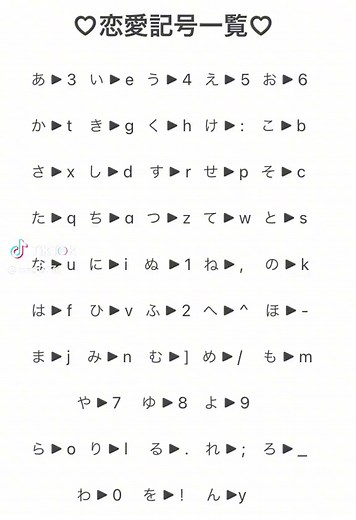 ♡恋愛記号一覧♡
あ▶3 い▶e う▶4 え▶5 お▶6
か▶t き▶g く▶h け▶: こ▶b
さ▶x し▶d す▶r せ▶p そ▶c
た▶q ち▶a つ▶z て▶w と▶s
な▶u に▶i ぬ▶1 ね▶, の▶k
は▶f ひ▶v ふ▶2 へ▶^ ほ▶-
ま▶j み▶n む▶] め▶/ も▶m
や▶7 ゆ▶8 よ▶9
ら▶o り▶l る▶. れ▶; ろ▶_
わ▶0 を▶! ん▶y